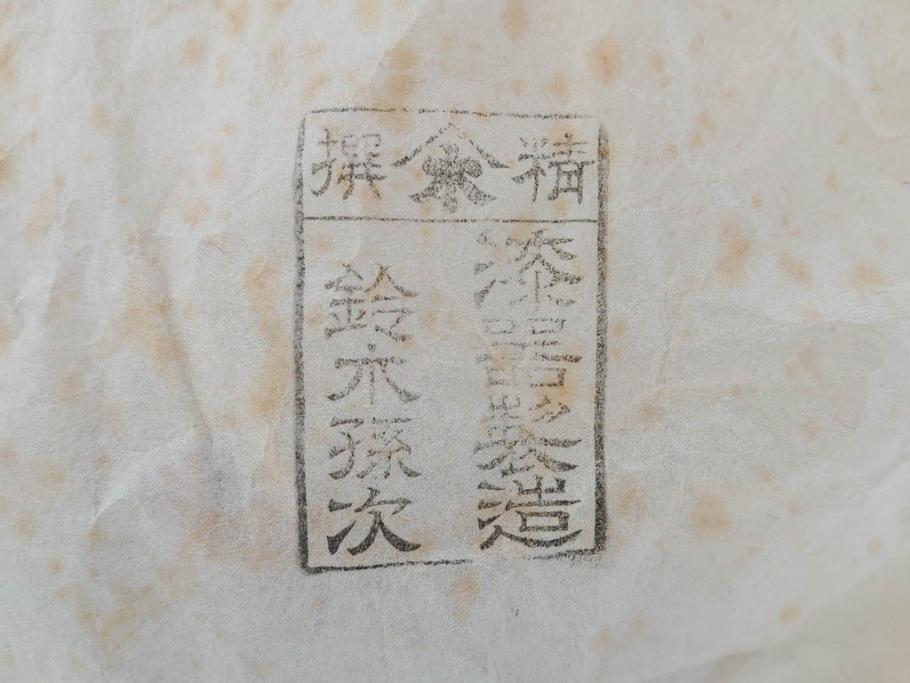 精撰
漆器製造
鈴木孫次